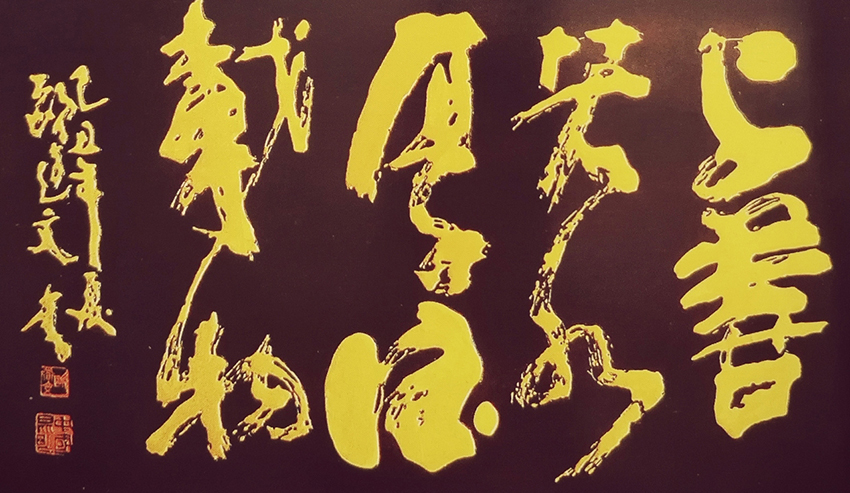 上善
若水
厚德
载物
己丑年夏
文书